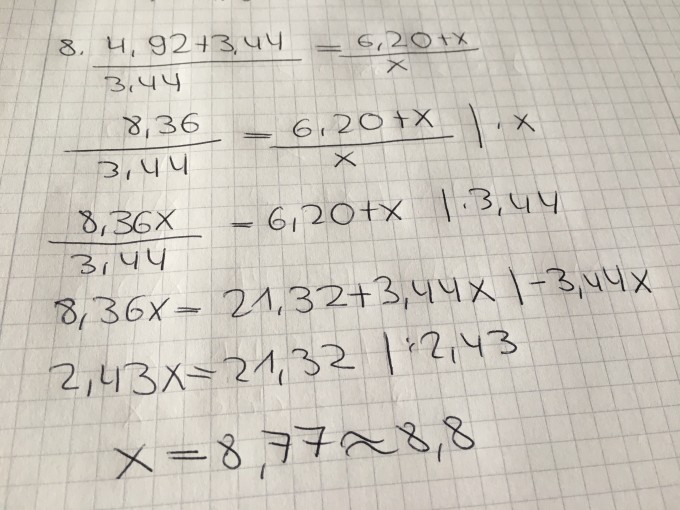 8. (4,92+3,44)/3,44 = (6,20+x)/x
8,36/3,44 = (6,20+x)/x | · x
8,36x/3,44 = 6,20+x | · 3,44
8,36x = 21,32+3,44x | -3,44x
2,43x = 21,32 | : 2,43
x = 8,77 ≈ 8,8